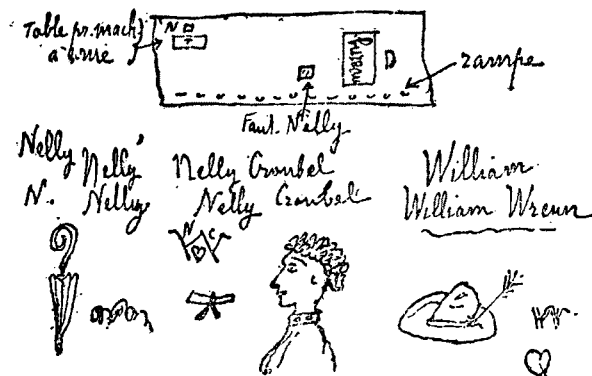 Table pr. mach.
à écrire
N
bureau
D
rampe
Faut. Nelly
Nelly Nelly Nelly Croubel William
N. Nelly Nelly Croubel William Wrenn
N C
W.